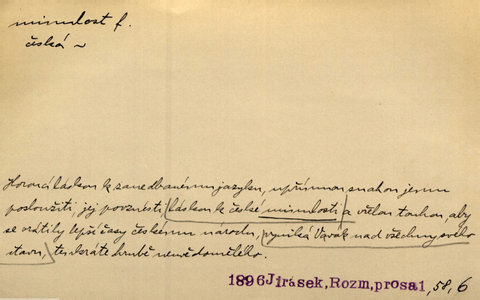 minulost f.
česká ~
Horoucí láskou k zanedbanému jazyku, upřímnou snahou jemu
posloužiti, jej povznésti, láskou k české minulosti a vřelou touhou, aby
se vrátily lepší časy českému národu, vyniká Vavák nad všechny svého
stavu, tenkráte hrubě nevědomělého.
1896 Jirásek, Rozm, prosa1, 58. 6